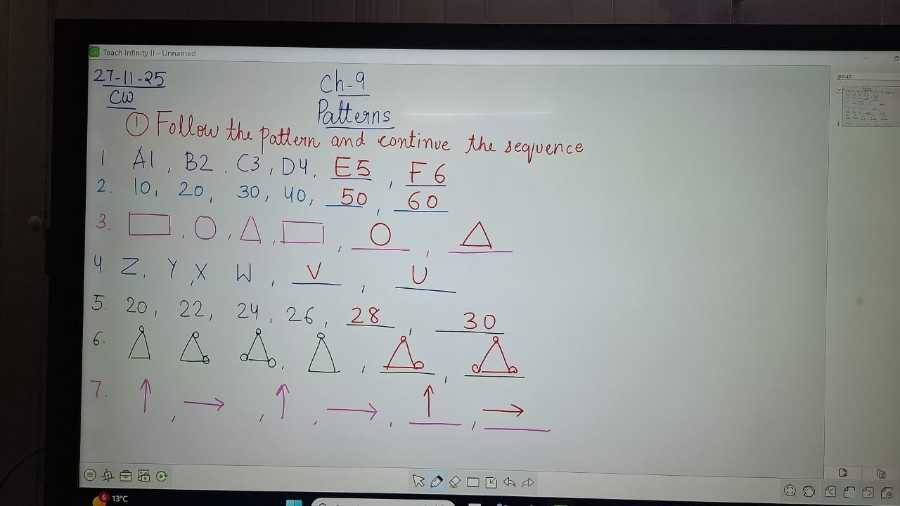 Teach Infinity II - Unnamed
27-11-25
CW
Ch-9
Patterns
① Follow the pattern and continue the sequence
1 A1, B2, C3, D4, E5, F6
2. 10, 20, 30, 40, 50, 60
3.
4 Z, Y, X W, V, U
5 20, 22, 24, 26, 28, 30
6.
7.
6 13°C